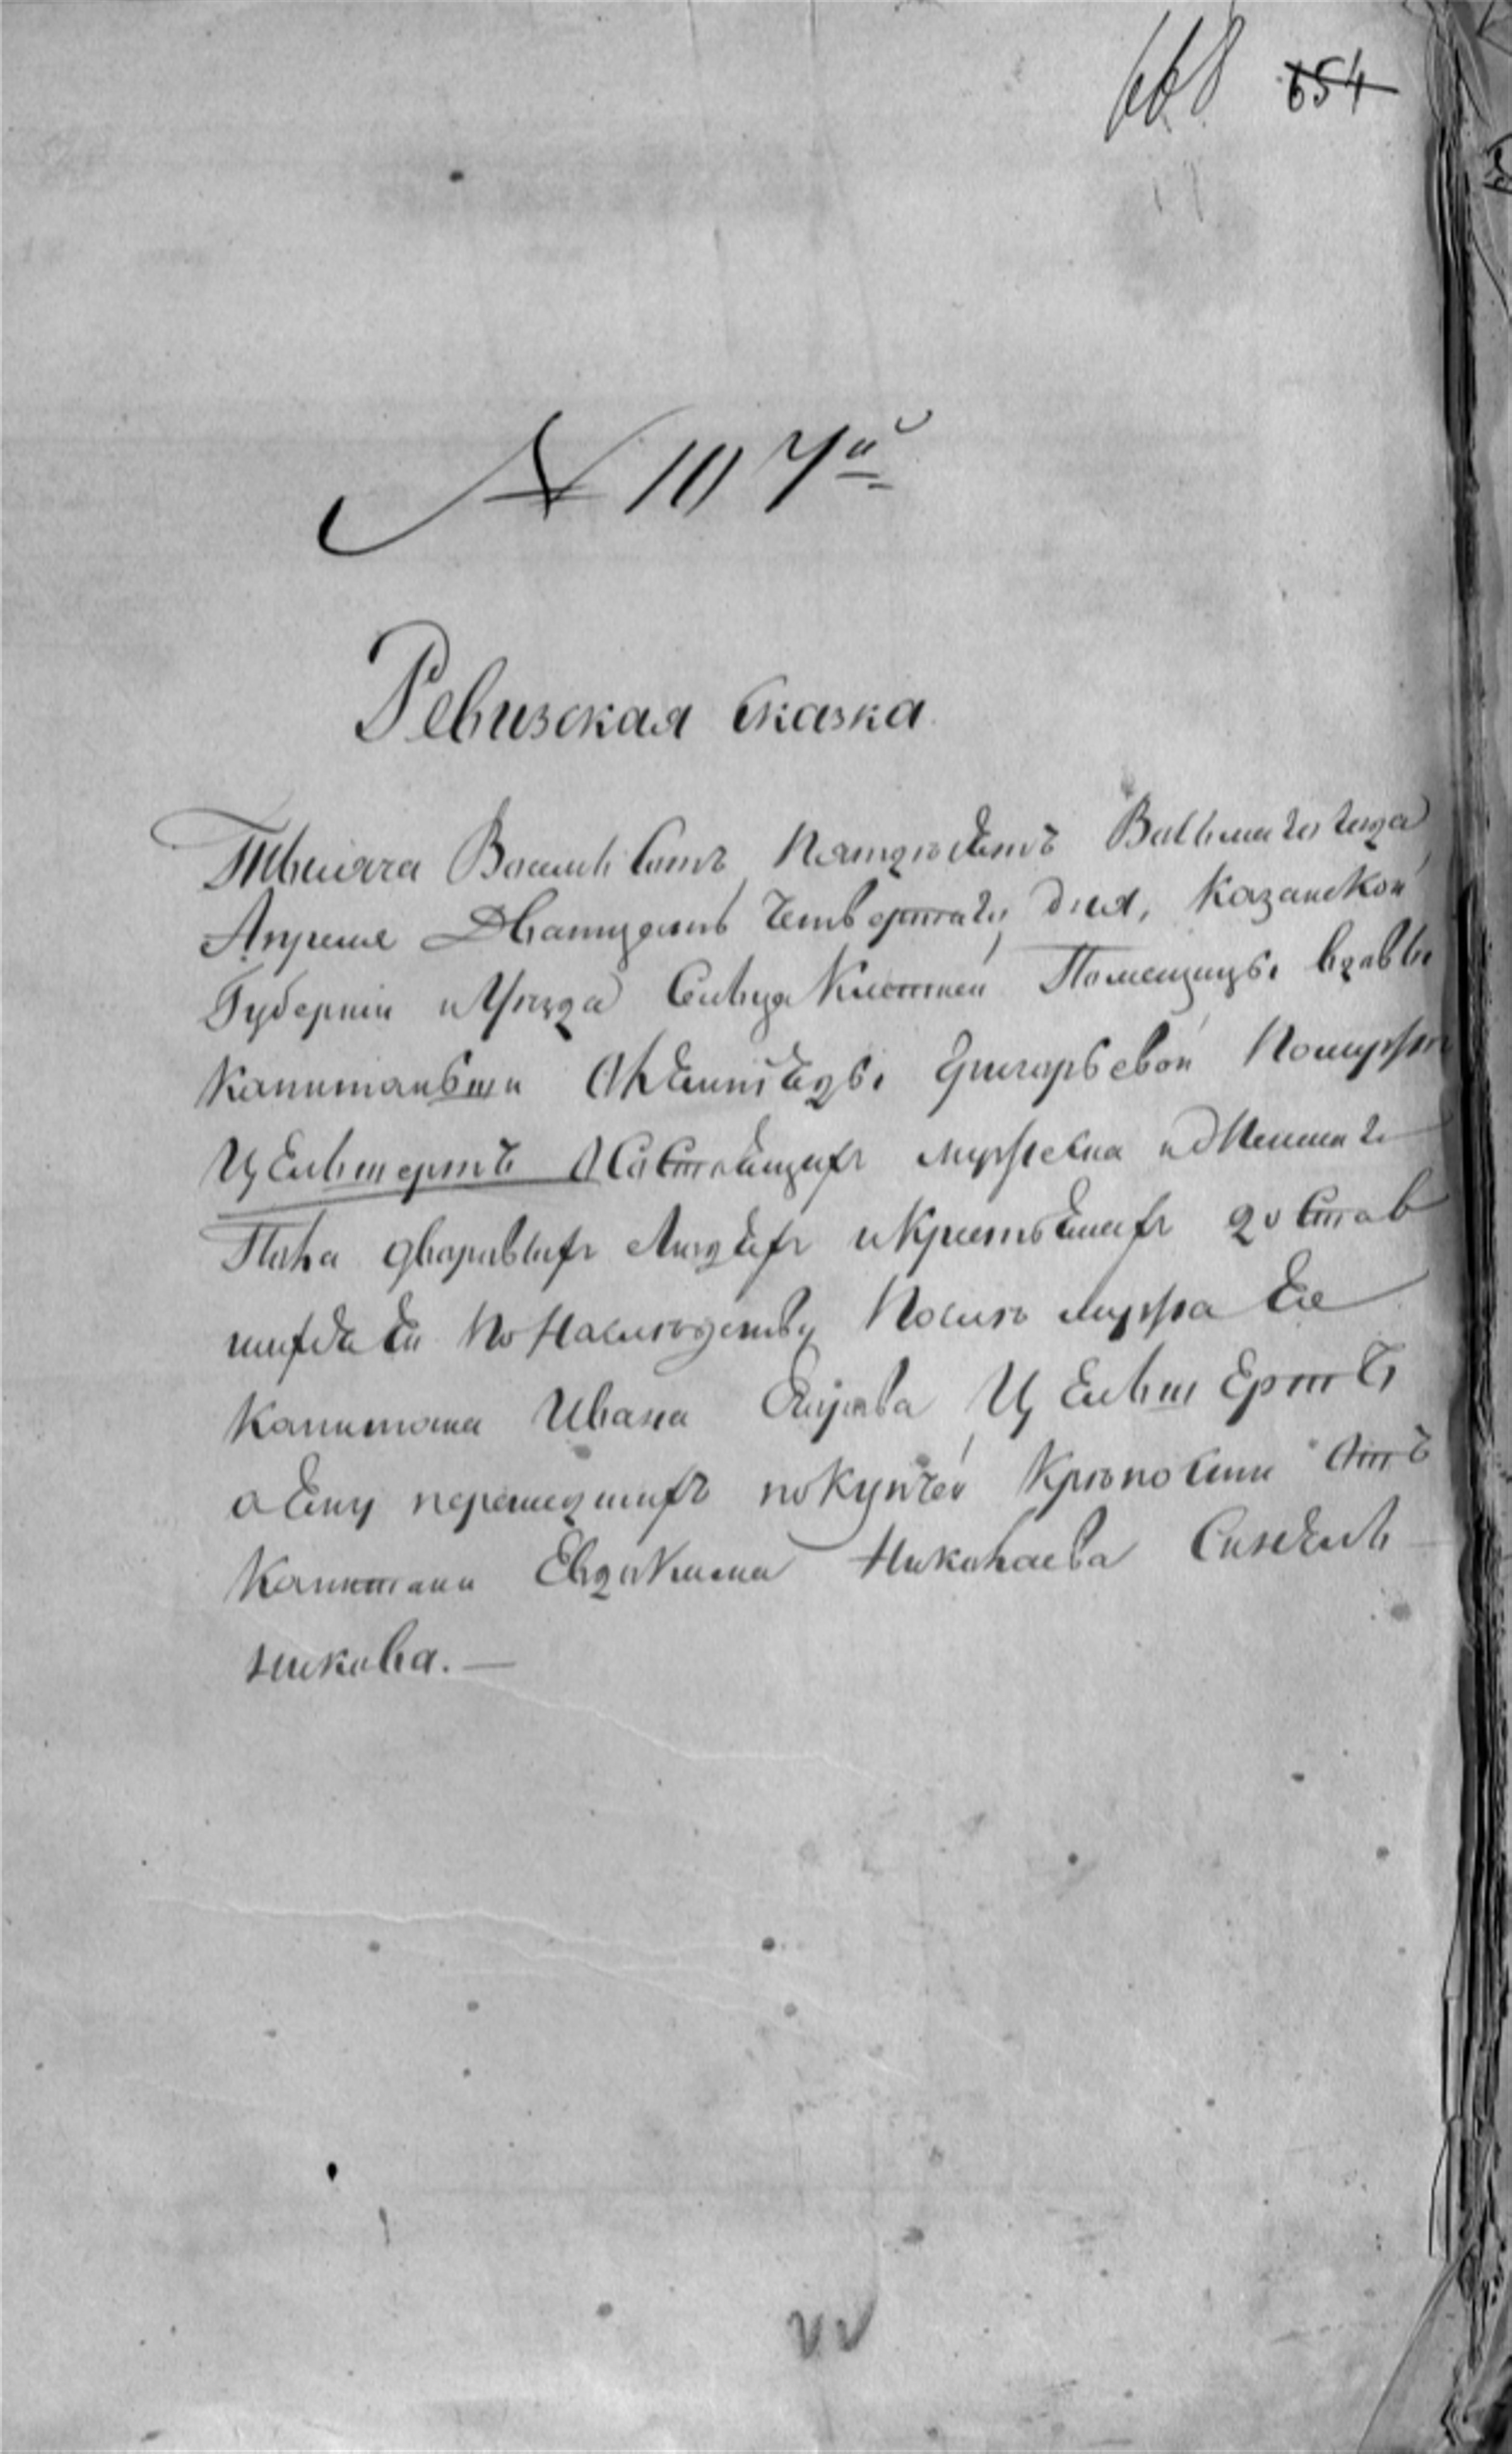 668 654
№ 107й
Ревизская сказка
Тысяча Восемь Сотъ Пятдесятъ Восьмаго года
Апреля Дватцеть Четвертаго дня, Казанской
Губернии и Уезда Сельца Помещицы вдовы
Капитанши Григорьевой По мужу
Цельшертъ О Состоящихъ мужеска и Женскаго
Пола дворовыхъ Людехъ и Крестьянехъ доСтав
шихся Ей По Наследству После мужа Ее
Капитана Ивана Цельшертъ
а Ему перешедшихъ по Купчей Крепости Отъ
Капитана Евдокима Николаева Синель
никова.—